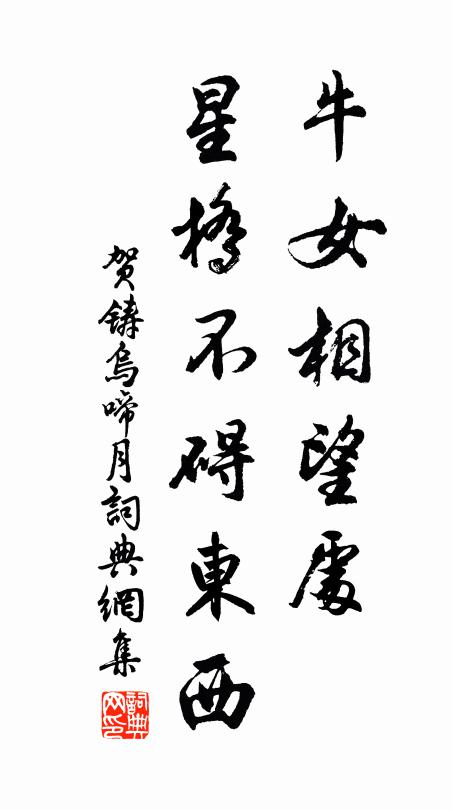 牛女相望處
星橋不碍東西
贺鑄烏啼月詞典網集
詞典网印